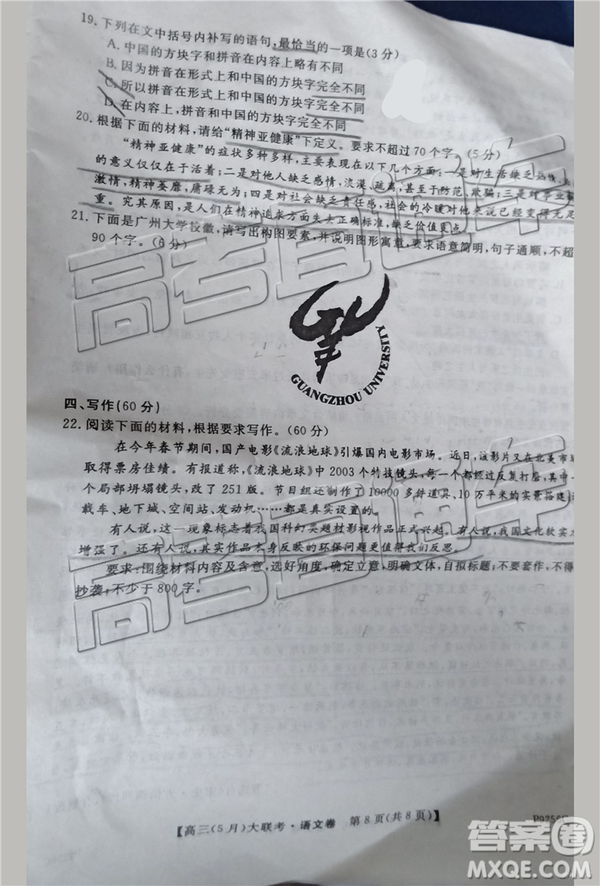 19. 下列在文中括号内补写的语句,最恰当的一项是(3分)
A. 中国的方块字和拼音在内容上略有不同
B. 因为拼音在形式上和中国的方块字完全不同
C. 所以拼音在形式上和中国的方块字完全不同
D. 在内容上,拼音和中国的方块字完全不同
20. 根据下面的材料,请给“精神亚健康”下定义。要求不超过70个字。(5分)
“精神亚健康”的症状多种多样,主要表现在以下几个方面:一是对生活缺乏热情,
的意义仅仅在于活着;二是对他人缺乏感情,淡漠、疏离,甚至于防范、欺骗;三是对学业
激情,精神萎靡,庸碌无为;四是对社会缺乏责任感,社会的冷暖对他来说
重。究其原因,是人们在精神追求方面失去正确标准,缺乏价值
21. 下面是广州大学校徽,请写出构图要素,并说明图形寓意,要求语意简明,句子通顺,不超
90个字。(6分)
GUANGZHOU UNIVERSITY
四、写作(60分)
22. 阅读下面的材料,根据要求写作。(60分)
在今年春节期间,国产电影《流浪地球》引爆国内电影市场。近日,该影片又在北美市
取得票房佳绩。有报道称,《流浪地球》中2003个特技镜头,每一个都经过反复打磨,其中
个局部坍塌镜头,改了251版。节目组还制作了10000多件道具,10万平方米的实景搭建
载车、地下城、空间站、发动机……都是真实设置的。
有人说,这一现象标志着我国科幻类题材影视作品正式兴起。有人说,我国文化软实
增强了。还有人说,其实作品本身反映的环保问题更值得我们反思。
要求:围绕材料内容及含意,选好角度,确定立意,明确文体,自拟标题;不要套作,不得
抄袭;不少于800字。
【高三(5月)大联考·语文卷 第8页(共8页)】
答案圈
MXQE.COM